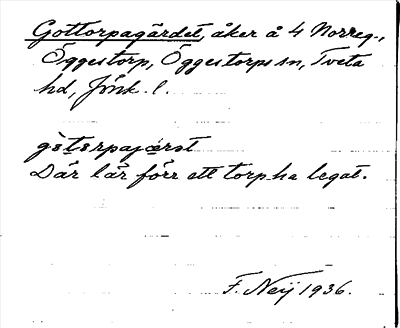 Gottorpagärdet, åker å 4 Norreg.,
Öggestorp, Öggestorps sn, Tveta
hd, Jönk. l.
gòtorpajærst
Där lär förr ett torp ha legat.
F. Neij 1936.